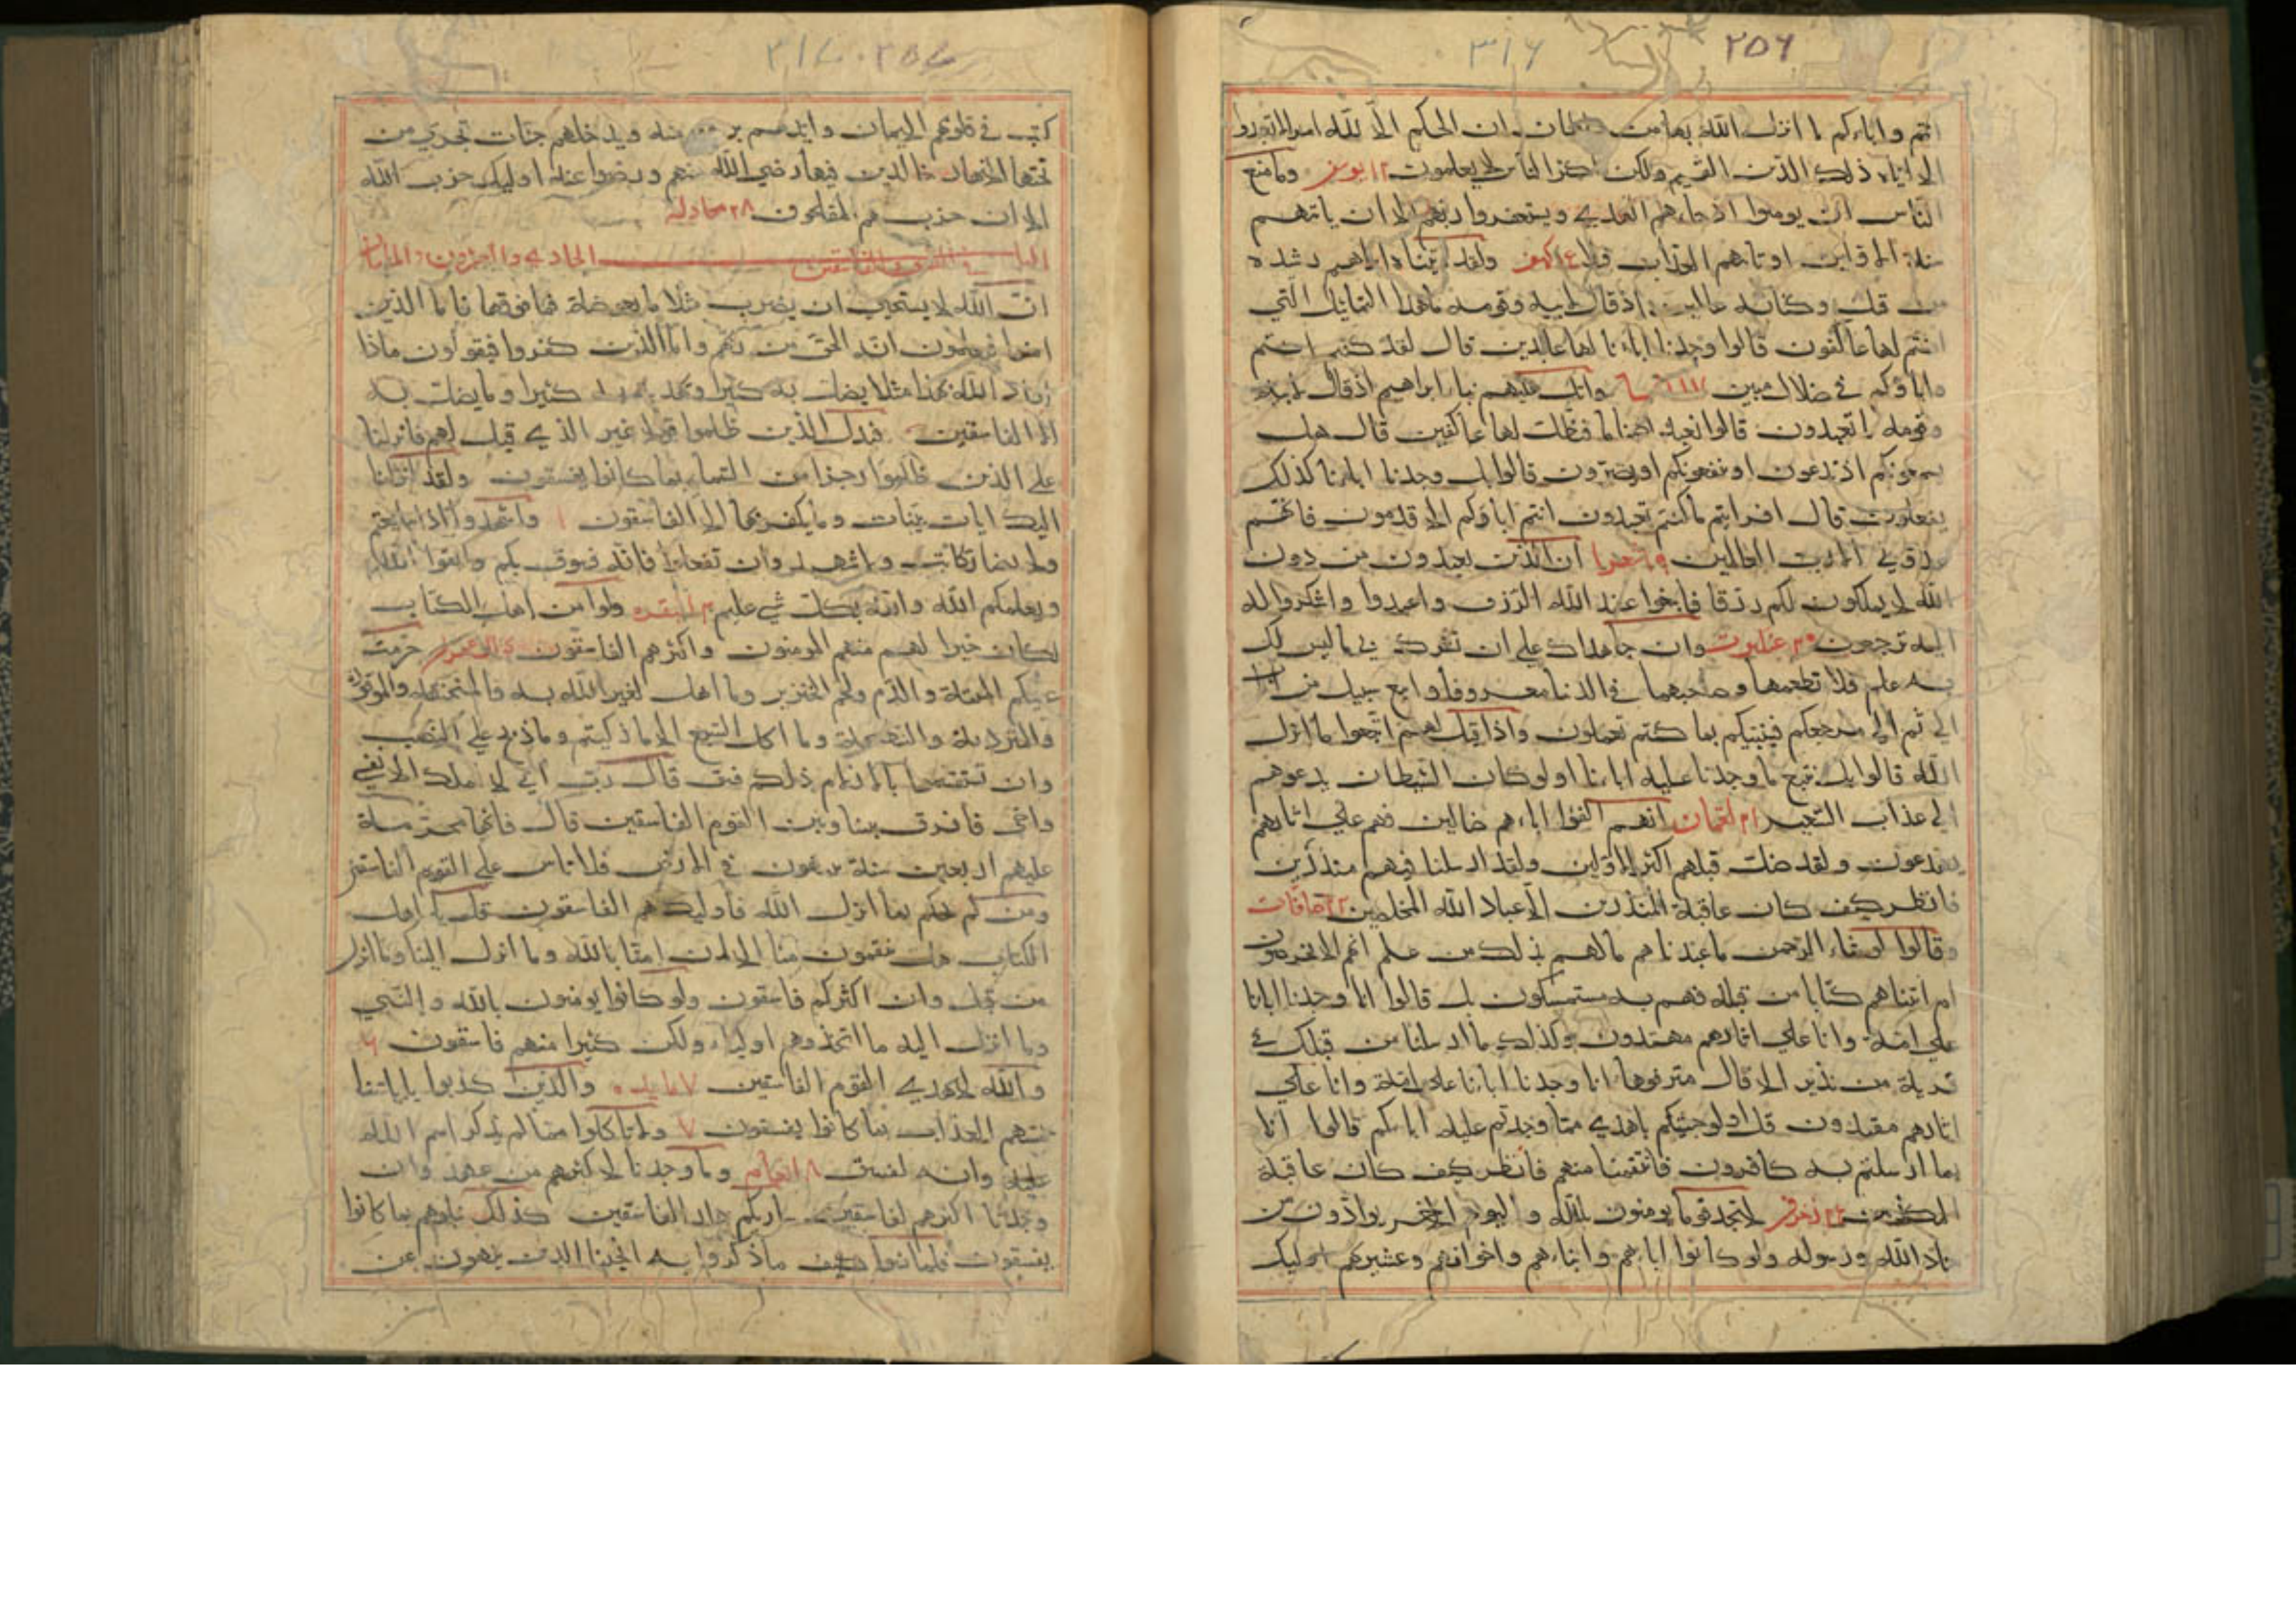 ٣١٦ ٢٥٦
انتم واباءكم ما انزل الله بها من سلطان ان الحكم الا لله امر الا تعبدوا
الا اياه ذلك الدين القيم ولكن اكثر الناس لا يعلمون ١٢ يوسف وما منع
الناس ان يومنوا اذ جاءهم الهدي ويستغفروا ربهم الا ان ياتيهم
سنة الاولين او ياتيهم العذاب قبلا كهف ولقد اتينا ابراهيم رشده
من قبل وكنا به عالمين اذ قال لابيه وقومه ما هذه التماثيل التي
انتم لها عاكفون قالوا وجدنا اباءنا لها عابدين قال لقد كنتم انتم
واباوكم في ضلال مبين واتل عليهم نبا ابراهيم اذ قال لابيه
وقومه ما تعبدون قالوا نعبد اصناما فنظل لها عاكفين قال هل
يسمعونكم اذ تدعون او ينفعونكم او يضرون قالوا بل وجدنا اباءنا كذلك
يفعلون قال افرايتم ما كنتم تعبدون انتم اباوكم الاقدمون فانهم
عدو لي الا رب العالمين شعرا ان الذين يعبدون من دون
الله لا يملكون لكم رزقا فابتغوا عند الله الرزق واعبدوا واشكروا له
اليه ترجعون ٢٩ عنكبوت وان جاهداك علي ان تشرك بي ما ليس لك
به علم فلا تطعهما وصاحبهما في الدنيا معروفا واتبع سبيل من اناب
الي ثم الي مرجعكم فينبئكم بما كنتم تعملون واذا قيل لهم اتبعوا ما انزل
الله قالوا بل نتبع ما وجدنا عليه اباءنا اولو كان الشيطان يدعوهم
الي عذاب السعير ٣١ لقمان انهم الفوا اباءهم ضالين فهم علي اثارهم
يهرعون ولقد ضل قبلهم اكثر الاولين ولقد ارسلنا فيهم منذرين
فانظر كيف كان عاقبة المنذرين الا عباد الله المخلصين صافات
وقالوا لو شاء الرحمن ما عبدناهم ما لهم بذلك من علم ان هم الا يخرصون
ام اتيناهم كتابا من قبله فهم به مستمسكون بل قالوا انا وجدنا اباءنا
علي امة وانا علي اثارهم مهتدون وكذلك ما ارسلنا من قبلك في
قرية من نذير الا قال مترفوها انا وجدنا اباءنا علي امة وانا علي
اثارهم مقتدون قل اولو جئتكم باهدي مما وجدتم عليه اباءكم قالوا انا
بما ارسلتم به كافرون فانتقمنا منهم فانظر كيف كان عاقبة
المكذبين زخرف لا تجد قوما يومنون بالله واليوم الاخر يوادون من
حاد الله ورسوله ولو كانوا اباءهم وابناءهم واخوانهم وعشيرتهم اوليك
كتب في قلوبهم الايمان وايدهم بروح منه ويدخلهم جنات تجري من
تحتها الانهار خالدين فيها رضي الله عنهم ورضوا عنه اوليك حزب الله
الا ان حزب هم المفلحون مجادله
الباب في الفسق والفاسقين الحادي والعشرون والمايتان
ان الله لا يستحيي ان يضرب مثلا ما بعوضة فما فوقها فاما الذين
امنوا فيعلمون انه الحق من ربهم واما الذين كفروا فيقولون ماذا
اراد الله بهذا مثلا يضل به كثيرا ويهدي به كثيرا وما يضل به
الا الفاسقين فبدل الذين ظلموا قولا غير الذي قيل لهم فانزلنا
علي الذين ظلموا رجزا من السماء بما كانوا يفسقون ولقد انزلنا
اليك ايات بينات وما يكفر بها الا الفاسقون واشهدوا اذا تبايعتم
ولا يضار كاتب ولا شهيد وان تفعلوا فانه فسوق بكم واتقوا الله
ويعلمكم الله والله بكل شي عليم بقره ولو امن اهل الكتاب
لكان خيرا لهم منهم المومنون واكثرهم الفاسقون ال عمران حرمت
عليكم الميتة والدم ولحم الخنزير وما اهل لغير الله به والمنخنقة والموقوذة
والمتردية والنطيحة وما اكل السبع الا ما ذكيتم وما ذبح علي النصب
وان تستقسموا بالازلام ذلك فسق قال رب اني لا املك الا نفسي
واخي فافرق بيننا وبين القوم الفاسقين قال فانها محرمة
عليهم اربعين سنة يتيهون في الارض فلا تاس علي القوم الفاسقين
ومن لم يحكم بما انزل الله فاوليك هم الفاسقون قل يا اهل
الكتاب هل تنقمون منا الا ان امنا بالله وما انزل الينا وما انزل
من قبل وان اكثركم فاسقون ولو كانوا يومنون بالله والنبي
وما انزل اليه ما اتخذوهم اولياء ولكن كثيرا منهم فاسقون ٦
والله لا يهدي القوم الفاسقين ٧ مايده والذين كذبوا باياتنا
يمسهم العذاب بما كانوا يفسقون ٧ ولا تاكلوا مما لم يذكر اسم الله
عليه وانه لفسق ٨ انعام وما وجدنا لاكثرهم من عهد وان
وجدنا اكثرهم لفاسقين ساريكم دار الفاسقين كذلك نبلوهم بما كانوا
يفسقون فلما نسوا ما ذكروا به انجينا الذين ينهون عن